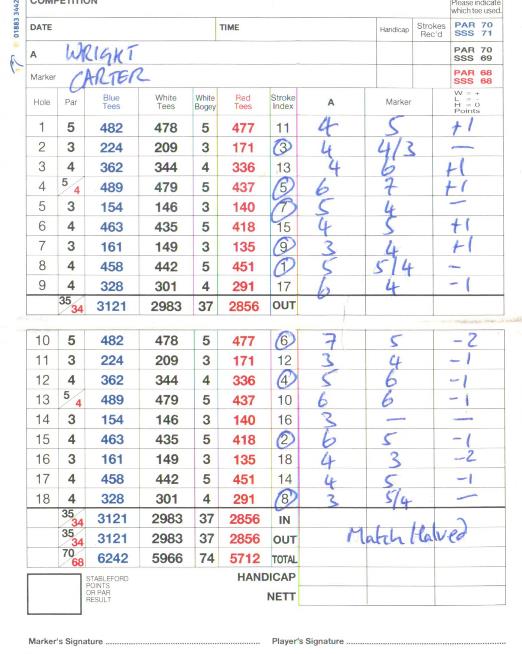 COMPETITION
Please indicate
which tee used.
01883 3442
DATE TIME Handicap Strokes Rec'd PAR 70 SSS 71
A WRIGHT PAR 70 SSS 69
Marker CARTER PAR 68 SSS 68
Hole Par Blue Tees White Tees White Bogey Red Tees Stroke Index A Marker W = + L = - H = 0 Points
1 5 482 478 5 477 11 4 5 +1
2 3 224 209 3 171 3 4 4/3 —
3 4 362 344 4 336 13 4 6 +1
4 5/4 489 479 5 437 5 6 7 +1
5 3 154 146 3 140 7 5 4 —
6 4 463 435 5 418 15 4 5 +1
7 3 161 149 3 135 9 3 4 +1
8 4 458 442 5 451 1 5 5/4 —
9 4 328 301 4 291 17 6 4 -1
35/34 3121 2983 37 2856 OUT
10 5 482 478 5 477 6 7 5 -2
11 3 224 209 3 171 12 3 4 -1
12 4 362 344 4 336 4 5 6 -1
13 5/4 489 479 5 437 10 6 6 -1
14 3 154 146 3 140 16 3 — —
15 4 463 435 5 418 2 6 5 -1
16 3 161 149 3 135 18 4 3 -2
17 4 458 442 5 451 14 4 5 -1
18 4 328 301 4 291 8 3 5/4 —
35/34 3121 2983 37 2856 IN
35/34 3121 2983 37 2856 OUT Match Halved
70/68 6242 5966 74 5712 TOTAL
STABLEFORD
POINTS
OR PAR
RESULT
HANDICAP
NETT
Marker's Signature .......................... Player's Signature ..........................